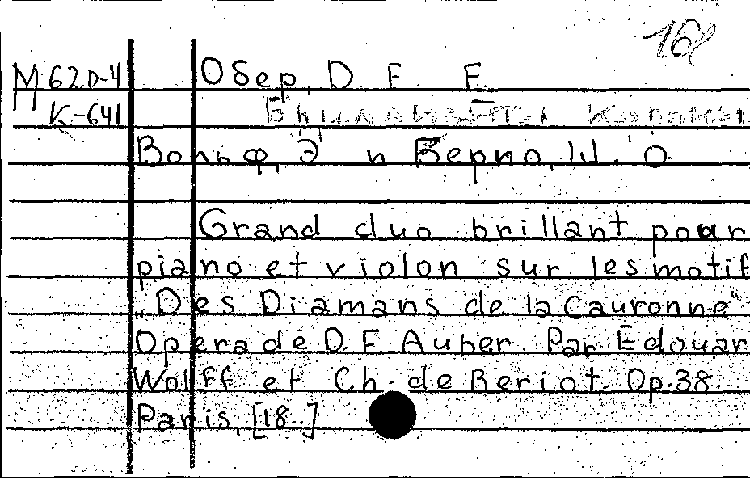 16
М 62D-4 Обер, D F E
К-641 Бриллианты Короны
Вольф, Э и Берио, Ш. О
Grand duo brillant pour
piano et violon sur les motif
"Des Diamans de la Cauronne"
Opera de D. F. Auber. Par Edouar
Wolff et Ch. de Beriot. Op. 38
Paris, [18 ]